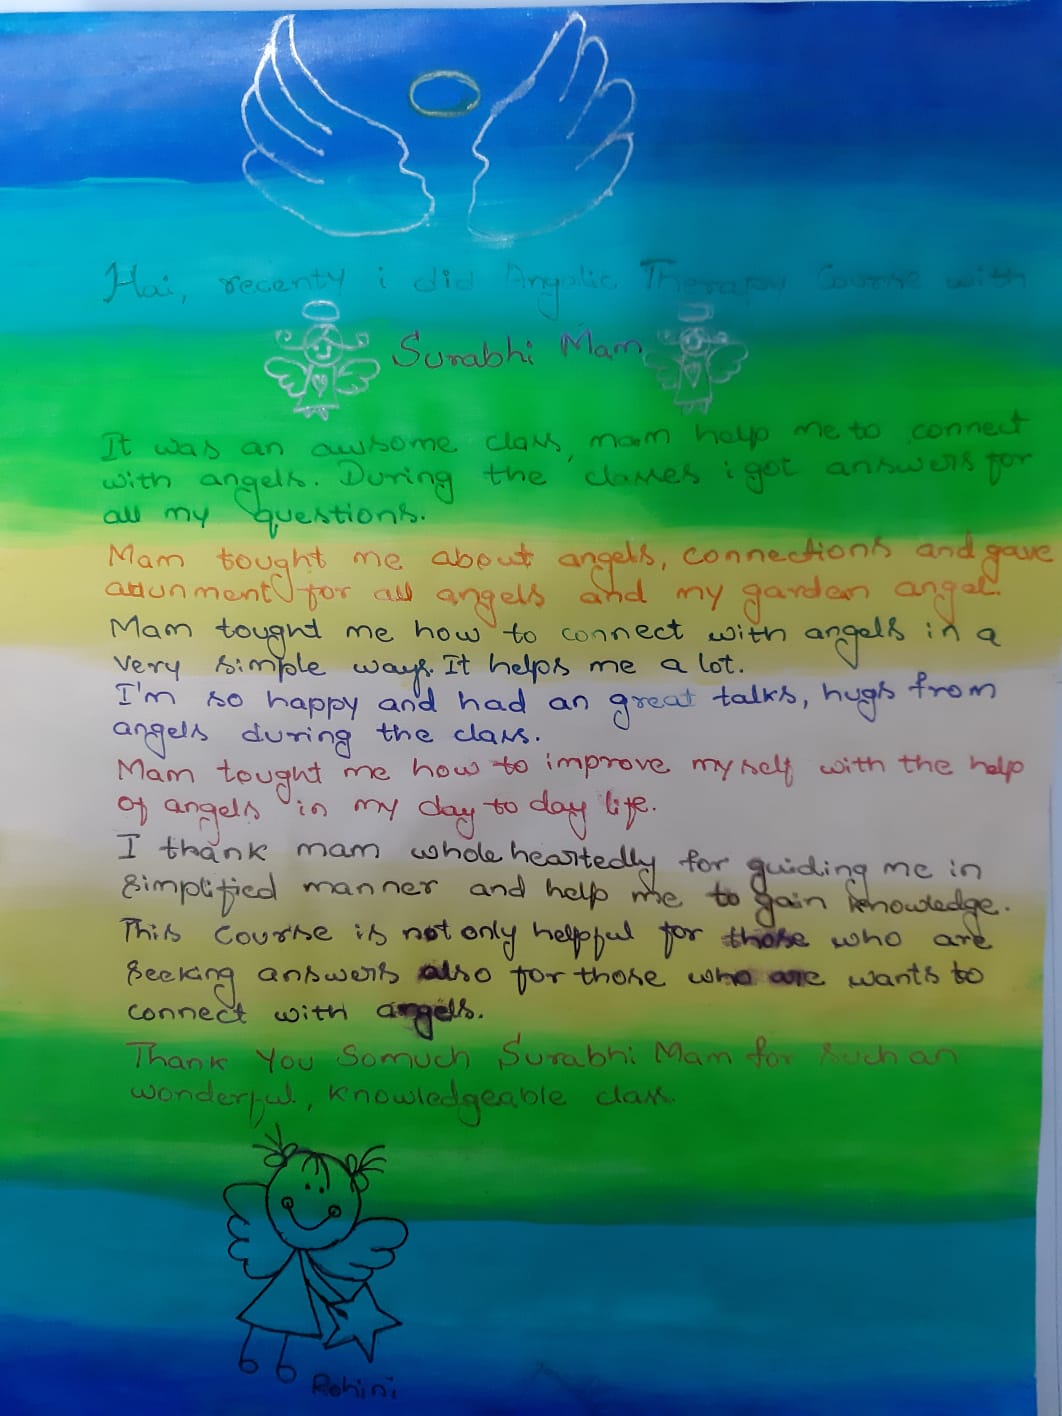 Hai, recenty i did Angelic Therapy Course with
Surabhi Mam
It was an awsome class, mam help me to connect
with angels. During the classes i got answers for
all my questions.
Mam tought me about angels, connections and gave
atunment for all angels and my garden angel.
Mam tought me how to connect with angels in a
very simple ways. It helps me a lot.
I'm so happy and had an great talks, hugs from
angels during the class.
Mam tought me how to improve myself with the help
of angels in my day to day life.
I thank mam whole heartedly for guiding me in
simplified manner and help me to gain knowledge.
This course is not only helpful for those who are
seeking answers also for those who are wants to
connect with angels.
Thank You Somuch Surabhi Mam for such an
wonderful, knowledgeable class.
Rohini